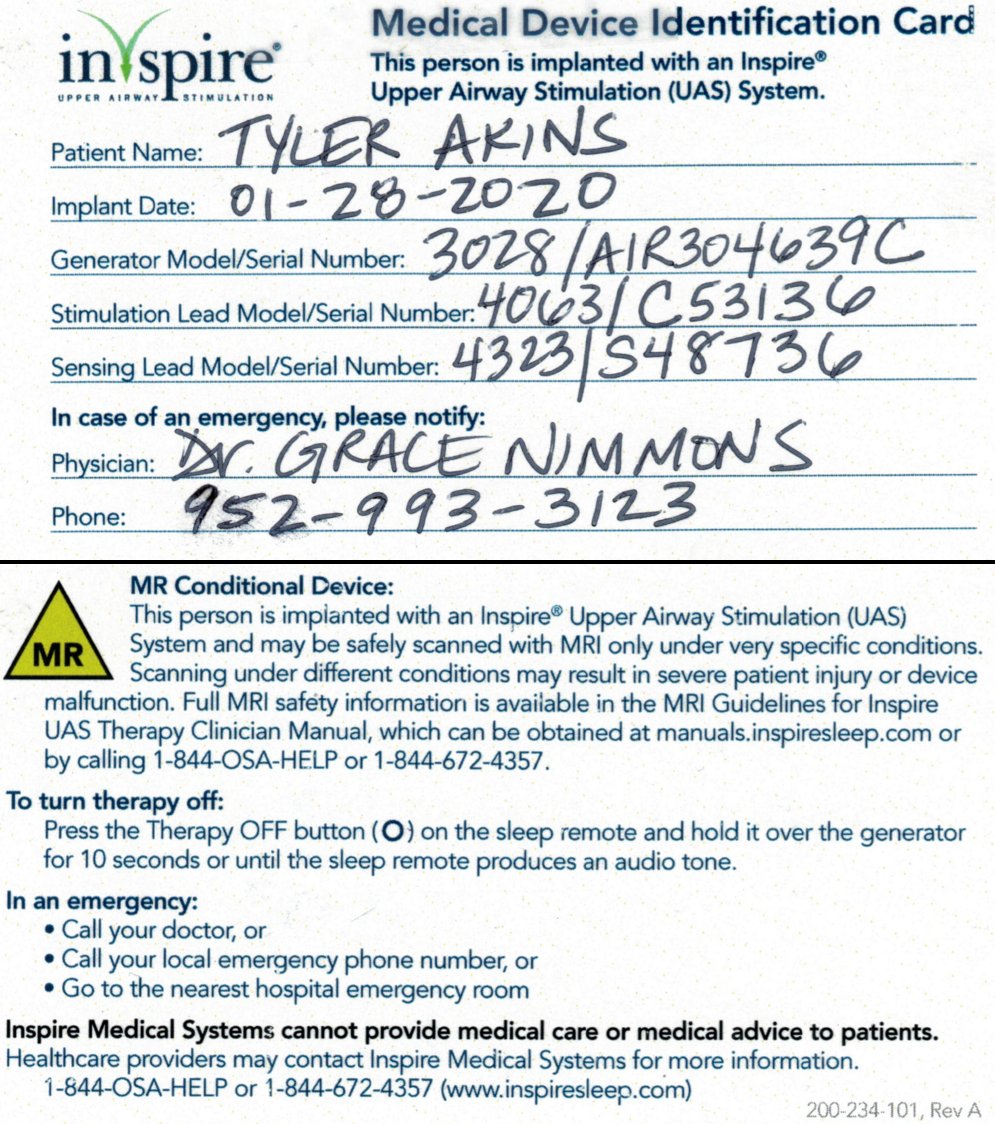 inspire®
UPPER AIRWAY STIMULATION
Medical Device Identification Card
This person is implanted with an Inspire®
Upper Airway Stimulation (UAS) System.
Patient Name: TYLER AKINS
Implant Date: 01-28-2020
Generator Model/Serial Number: 3028/AIR304639C
Stimulation Lead Model/Serial Number: 4063/C53136
Sensing Lead Model/Serial Number: 4323/S48736
In case of an emergency, please notify:
Physician: Dr. GRACE NIMMONS
Phone: 952-993-3123
MR
MR Conditional Device:
This person is implanted with an Inspire® Upper Airway Stimulation (UAS)
System and may be safely scanned with MRI only under very specific conditions.
Scanning under different conditions may result in severe patient injury or device
malfunction. Full MRI safety information is available in the MRI Guidelines for Inspire
UAS Therapy Clinician Manual, which can be obtained at manuals.inspiresleep.com or
by calling 1-844-OSA-HELP or 1-844-672-4357.
To turn therapy off:
Press the Therapy OFF button (O) on the sleep remote and hold it over the generator
for 10 seconds or until the sleep remote produces an audio tone.
In an emergency:
• Call your doctor, or
• Call your local emergency phone number, or
• Go to the nearest hospital emergency room
Inspire Medical Systems cannot provide medical care or medical advice to patients.
Healthcare providers may contact Inspire Medical Systems for more information.
1-844-OSA-HELP or 1-844-672-4357 (www.inspiresleep.com)
200-234-101, Rev A